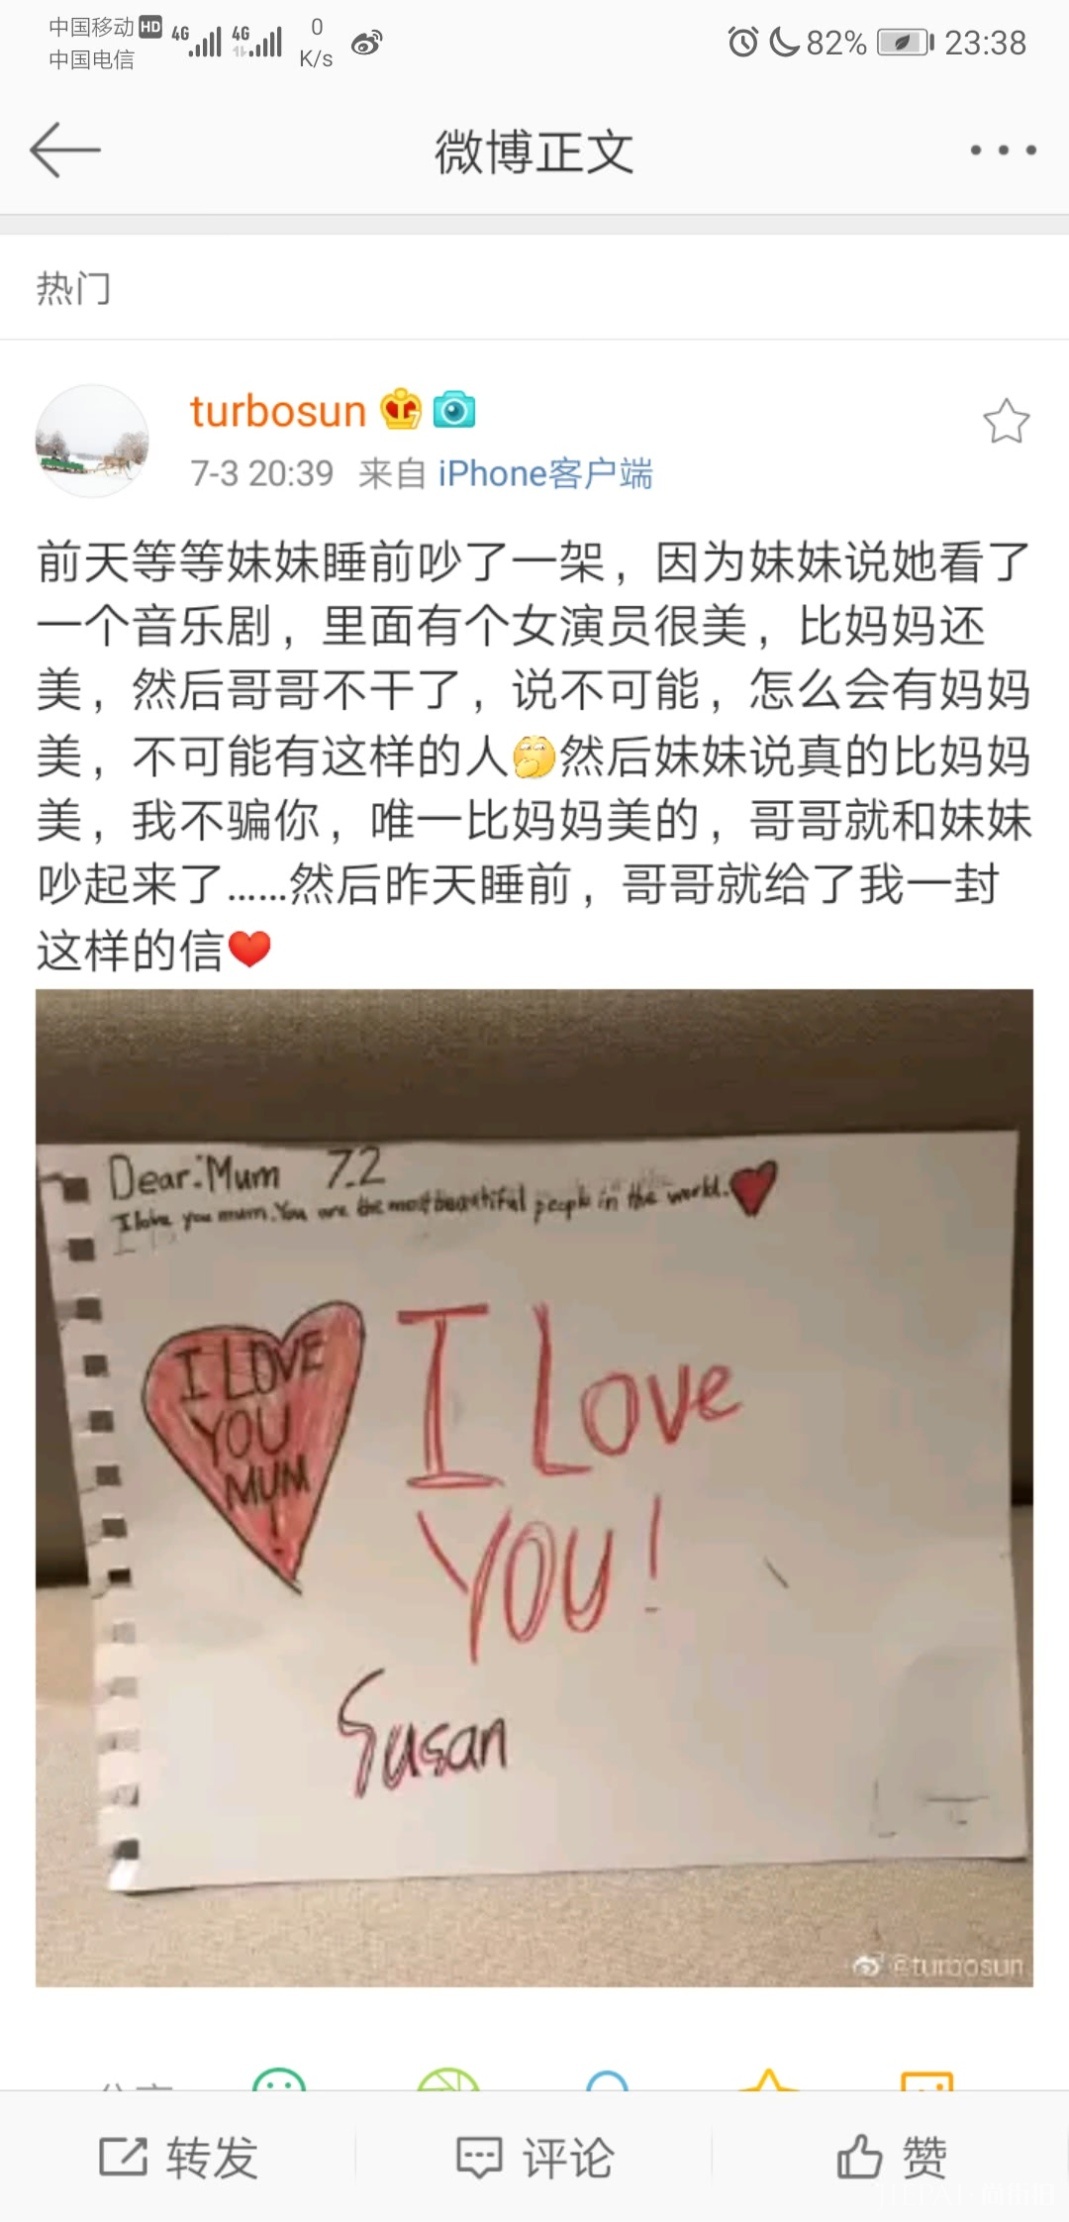 中国移动 HD 4G 4G 0 K/s 82% 23:38
中国电信
微博正文
热门
turbosun
7-3 20:39 来自 iPhone客户端
前天等等妹妹睡前吵了一架，因为妹妹说她看了
一个音乐剧，里面有个女演员很美，比妈妈还
美，然后哥哥不干了，说不可能，怎么会有妈妈
美，不可能有这样的人🤔然后妹妹说真的比妈妈
美，我不骗你，唯一比妈妈美的，哥哥就和妹妹
吵起来了……然后昨天睡前，哥哥就给了我一封
这样的信❤
Dear:Mum 7.2
I love you mum. You are the most beautiful people in the world.
I LOVE
YOU
MUM
!
I Love
YOU!
Susan
@turbosun
转发
评论
赞